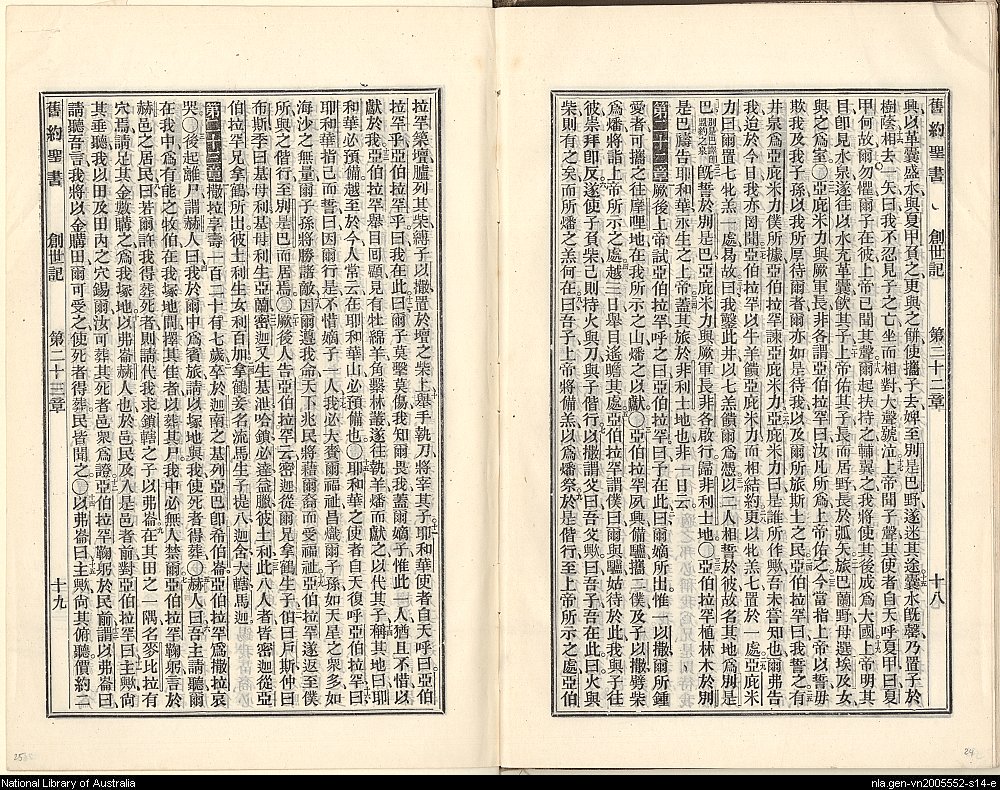 舊約聖書 創世記 第二十二章 十八
興以革囊盛水與夏甲負之更與之餅使攜子去婢至別是巴野遂迷其途囊水既罄乃置子於
樹蔭相去一矢曰我不忍見子之亡坐而相對大聲號泣上帝聞子聲其使者自天呼夏甲曰夏
甲何故爾勿懼爾子在彼上帝已聞其聲爾起扶持之輔翼之我將使其後成爲大國上帝明其
目卽見水泉遂往以水充革囊飲其子上帝佑其子長而居野長於弧矢旅巴蘭野母選埃及女
與之爲室○亞庇米力與厥軍長非各謂亞伯拉罕曰汝凡所爲上帝佑之今當指上帝以誓毋
欺我及我子孫以我所厚待爾者爾亦如是待我以及爾所旅斯土之民亞伯拉罕曰我誓之有
井泉爲亞庇米力僕所據亞伯拉罕諫亞庇米力亞庇米力曰是誰所作歟吾未嘗知也爾弗告
我迨於今日我亦罔聞亞伯拉罕以牛羊饋亞庇米力而相結約更以牝羔七置於一處亞庇米
力曰爾置七牝羔一處曷故曰我鑿此井以七羔饋爾爲憑以二人相誓於彼故名其地爲別是
巴盟約之泉既誓於別是巴亞庇米力與厥軍長非各啟行歸非利士地○亞伯拉罕植林木於別
是巴禱告耶和華永生之上帝蓋其旅於非利士地也非一日云
第二十二章厥後上帝試亞伯拉罕呼之曰亞伯拉罕曰予在此曰爾嫡所出惟一以撒爾所鍾
愛者可攜之往摩哩地在我所示之山燔之以獻○亞伯拉罕夙興備驢攜二僕及子以撒劈柴
爲燔將詣上帝所示之處越三日舉目遙瞻其處亞伯拉罕謂僕曰爾與驢姑待於此我與子往
彼崇拜卽反遂使子負柴己則持火與刀與子偕行以撒謂父曰吾父歟曰吾子吾在此曰火與
柴則有之矣而所燔之羔何在曰吾子上帝將備羔以爲燔祭於是偕行至上帝所示之處亞伯
拉罕築壇臚列其柴縛子以撒置於壇之柴上舉手執刀將宰其子耶和華使者自天呼曰亞伯
拉罕乎亞伯拉罕乎曰我在此曰爾子莫擊莫傷我知爾畏我蓋爾嫡子惟此一人猶且不惜以
獻於我亞伯拉罕舉目回顧見有牡綿羊角繫林叢遂往執羊燔而獻之以代其子稱其地曰耶
和華必預備越至於今人常云在耶和華山必預備也○耶和華之使者自天復呼亞伯拉罕曰
耶和華指己而誓曰因爾行是不惜嫡子一人我必大賚爾福祉昌熾爾子孫如天星之衆多如
海沙之無量爾子孫將勝諸敵因爾遵我命天下兆民將藉爾裔而受福祉亞伯拉罕遂返至僕
所與之偕行至別是巴而居焉○厥後人告亞伯拉罕云密迦從爾兄拿鶴生子伯曰戶斯仲曰
布斯季曰基母利利基母利生亞蘭密迦又生基泄哈鎖必達益臘彼土利此八人者皆密迦從亞
伯拉罕兄拿鶴所出彼土利生女利百加拿鶴妾名流馬生子提八迦含大轄馬迦
第二十三章撒拉享壽一百二十有七歲卒於迦南之基列亞巴卽希伯崙亞伯拉罕爲撒拉哀
哭○後起離尸謂赫人曰我於爾中爲賓旅請以塚地與我使死者得葬○赫人曰吾主請聽爾
在我中爲有能之牧伯在我塚地間擇其佳者以葬其尸我中必無人禁爾亞伯拉罕鞠躬言於
赫邑之居民曰若爾許我得葬死者則請代我求鎖轄之子以弗崙在其田之一隅名麥比拉有
穴焉請足其金數購之爲我塚地以弗崙赫人也於邑民及入是邑者前對亞伯拉罕曰主歟尙
其垂聽我以田及田內之穴錫爾汝可葬其死者邑衆爲證亞伯拉罕鞠躬於民前謂以弗崙曰
請聽吾言我將以金購田爾可受之使死者得葬民皆聞之○以弗崙曰主歟尙其俯聽價約二
舊約聖書 創世記 第二十三章 十九
24
25
National Library of Australia
nla.gen-vn2005552-s14-e